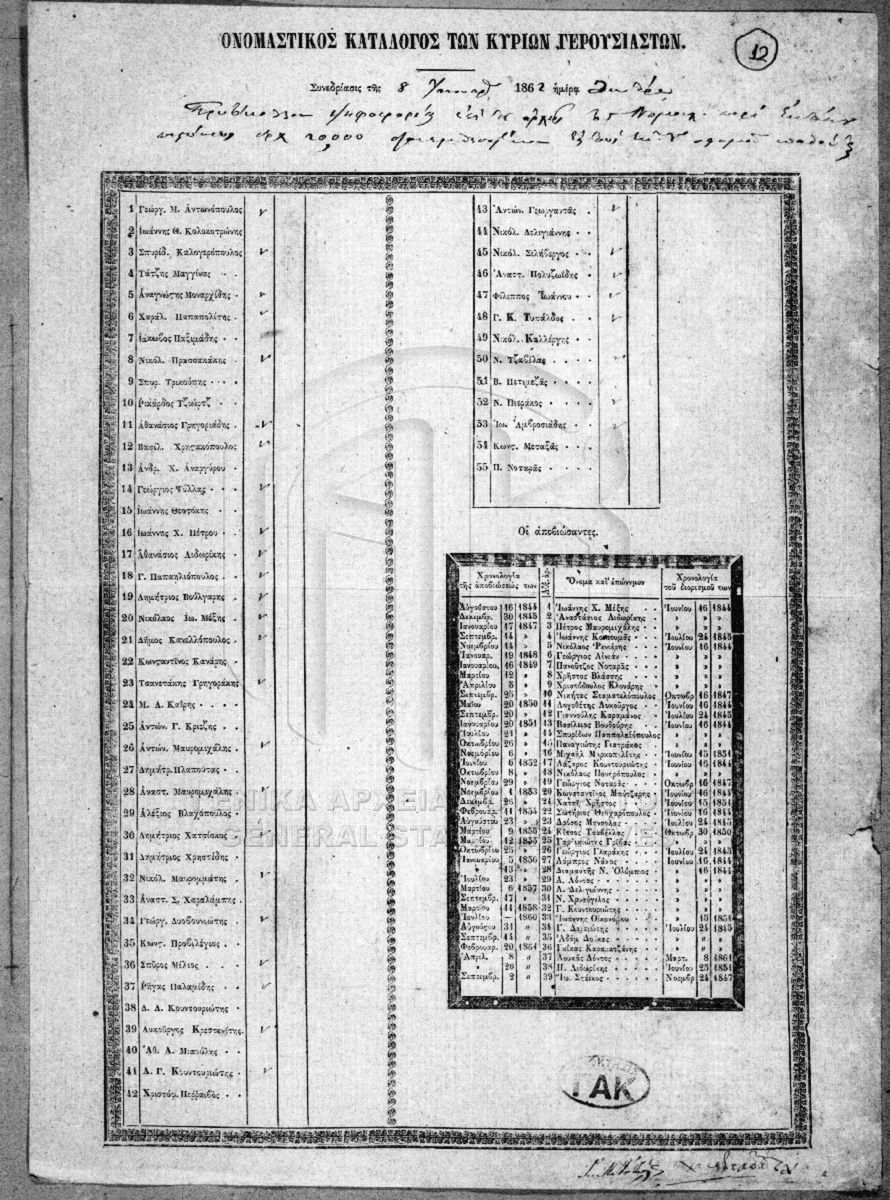 ΟΝΟΜΑΣΤΙΚΟΣ ΚΑΤΑΛΟΓΟΣ ΤΩΝ ΚΥΡΙΩΝ ΓΕΡΟΥΣΙΑΣΤΩΝ.
12
Συνεδρίασις τῆς 8 1862 ἡμέρα
20,000
1 Γεώργ. Μ. Ἀντωνόπουλος
2 Ἰωάννης Θ. Κολοκοτρώνης
3 Σπυρίδ. Καλογερόπουλος
4 Τάτζης Μαγγίνας
5 Ἀναγνώστης Μοναρχίδης
6 Χαράλ. Παπαπολίτης
7 Ἰάκωβος Παξιμάδης
8 Νικόλ. Πρασσακάκης
9 Σπυρ. Τρικούπης
10 Ῥικάρδος Τζιὼρτζ
11 Ἀθανάσιος Γρηγοριάδης
12 Βασίλ. Χρηστακόπουλος
13 Ἀνδρ. Χ. Ἀναργύρου
14 Γεώργιος Ψύλλας
15 Ἰωάννης Θεοτόκης
16 Ἰωάννης Χ. Πέτρου
17 Ἀθανάσιος Λιδωρίκης
18 Γ. Παπαηλιόπουλος
19 Δημήτριος Βούλγαρης
20 Νικόλαος Ἰω. Μέξης
21 Δῆμος Κανελλόπουλος
22 Κωνσταντῖνος Κανάρης
23 Τσανετάκης Γρηγοράκης
24 Μ. Δ. Καΐρης
25 Ἀντών. Γ. Κριεζῆς
26 Ἀντών. Μαυρομιχάλης
27 Δημήτρ. Πλαπούτας
28 Ἀναστ. Μαυρομιχάλης
29 Ἀλέξιος Βλαχόπουλος
30 Δημήτριος Χατσίσκος
31 Δημήτριος Χρηστίδης
32 Νικόλ. Μαυρομμάτης
33 Ἀναστ. Σ. Χαραλάμπης
34 Γεώργ. Δυοβουνιώτης
35 Κωνς. Προβιλέγιος
36 Σπῦρος Μίλιος
37 Ῥήγας Παλαμίδης
38 Δ. Δ. Κουντουριώτης
39 Λυκοῦργος Κρεστενίτης
40 Ἀθ. Α. Μιαούλης
41 Α. Γ. Κουντουριώτης
42 Χριστόφ. Περραιβός
43 Ἀντών. Γεωργαντᾶς
44 Νικόλ. Δελιγιάννης
45 Νικόλ. Σιλήβεργος
46 Ἀναστ. Πολυζωίδης
47 Φίλιππος Ἰωάννου
48 Γ. Κ. Τυπάλδος
49 Νικόλ. Καλλέργης
50 Ν. Τζαβέλας
51 Β. Πετιμεζᾶς
52 Ν. Πιεράκος
53 Ἰω. Ἀμβροσιάδης
54 Κωνς. Μεταξᾶς
55 Π. Νοταρᾶς
Οἱ ἀποβιώσαντες.
Χρονολογία τῆς ἀποβιώσεώς των Ὄνομα καὶ ἐπώνυμον Χρονολογία τοῦ διορισμοῦ των
Αὐγούστου 16 1844 1 Ἰωάννης Χ. Μέξης Ἰουνίου 16 1844
Δεκεμβρ. 30 1845 2 Ἀναστάσιος Λιδωρίκης » » »
Ἰανουαρίου 17 1847 3 Πέτρος Μαυρομιχάλης » » »
Σεπτεμβρ. 14 » 4 Ἰωάννης Ἰουλίου 24 1845
Νοεμβρίου 14 » 5 Νικόλαος Ῥενιέρης Ἰουνίου 16 1844
Ἰανουαρ. 19 1848 6 Γεώργιος Αἰνιάν » » »
Ἰανουαρίου 16 1849 7 Πανοῦτζος Νοταρᾶς » » »
Μαρτίου 12 » 8 Χρῆστος Βλάσσης » » »
Ἀπριλίου 5 » 9 Χριστόδουλος Κλονάρης » » »
Σεπτεμβρ. 25 » 10 Νικήτας Σταματελόπουλος Ὀκτωβρ 16 1847
Μαΐου 20 1850 11 Λογοθέτης Λυκοῦργος Ἰουνίου 16 1844
Σεπτεμβρ. 20 » 12 Γιαννούλης Καραμάνος Ἰουλίου 24 1845
Ἰανουαρίου 20 1851 13 Βασίλειος Βουδούρης Ἰουνίου 16 1844
Ἰουλίου 21 » 14 Σπυρίδων Παππαλεξόπουλος » » »
Ὀκτωβρίου 26 » 15 Παναγιώτης Γιατράκος » » »
Νοεμβρίου 6 » 16 Μιχαὴλ Ἰουνίου 15 1851
Ἰουνίου 6 1852 17 Λάζαρος Κουντουριώτης Ἰουνίου 16 1844
Ὀκτωβρίου 8 » 18 Νικόλαος Πονηρόπουλος » » »
Νοεμβρίου 29 » 19 Γεώργιος Νοταρᾶς Ὀκτωβρ 16 1847
Νοεμβρίου 4 1853 20 Κωνσταντῖνος Μπότζαρης Ἰουνίου 16 1847
Δεκεμβρ. 26 » 21 Χρῆστος Ἰουνίου 15 1851
Φεβρουαρ. 11 1854 22 Σωτήριος Θεοχαρόπουλος Ἰουνίου 16 1844
Αὐγούστου 23 » 23 Δρόσος Μανσόλας Ἰουλίου 24 1845
Μαρτίου 9 1855 24 Κίτσος Τσαβέλλας Ὀκτωβρ 30 1850
Μαρτίου 12 1855 25 Γαρδικιώτης Γρίβας » » »
Ὀκτωβρίου 25 » 26 Γεώργιος Γλαράκης Ἰουλίου 24 1845
Ἰανουαρίου 5 1856 27 Λάμπρος Νάκος Ἰουνίου 16 1844
» 13 » 28 Διαμαντῆς Ν. Ὀλύμπιος » 16 1844
Ἰουλίου 23 » 29 Α. Λόντος » » »
Μαρτίου 6 1857 30 Α. Δελιγιάννης » » »
Σεπτεμβρ. 17 » 31 Ν. Χρυσόγελος » » »
Μαρτίου 11 1858 32 Γ. Κουντουριώτης » » »
Ἰουλίου — 1860 33 Ἰωάννης Οἰκονόμου » 15 1851
Αὐγούστου 31 » 34 Γ. Δαρειώτης Ἰουλίου 24 1845
Σεπτεμβρ. 14 » 35 Ἀδὰμ Δούκας » » »
Φεβρουαρ. 20 1861 36 Γκίκας Καρακατζάνης » » »
Ἀπριλ. 8 » 37 Λουκᾶς Λόντος Μαρτ. 8 1861
» 20 » 38 Π. Λιδωρίκης Ἰουνίου 25 1851
Σεπτεμβρ. 2 » 39 Ἰω. Στάϊκος Νοεμβρ 24 1847
ΓΕΝΙΚΑ ΑΡΧΕΙΑ ΤΟΥ ΚΡΑΤΟΥΣ
GENERAL STATE ARCHIVES
ΓΑΚ